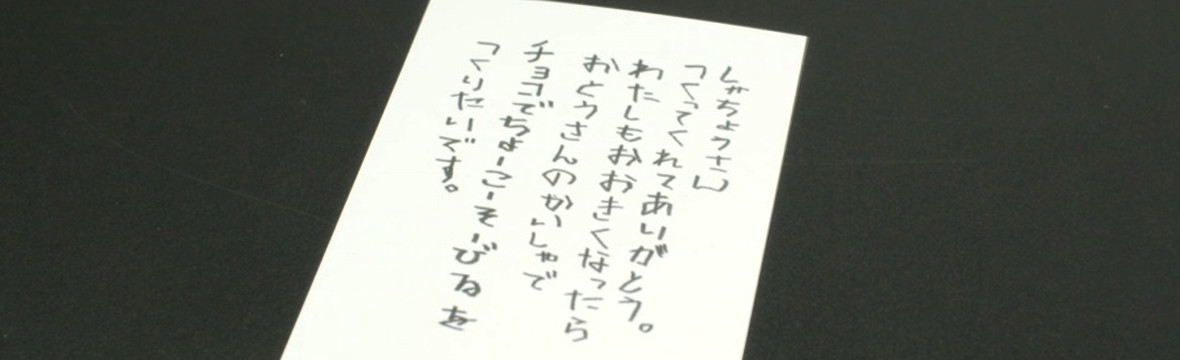 しゃちょうさん
つくってくれてあいがとう。
わたしもおおきくなったら
おとうさんのかいしゃで
チョコでちょーこーそーびるを
つくりたいです。